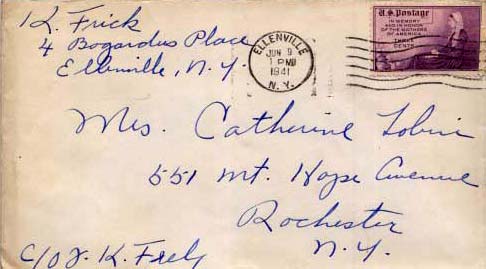 K. Frick
4 Bogardus Place
Ellenville, N.Y.
ELLENVILLE
JUN 9
1 PM
1941
N.Y.
U.S. Postage
IN MEMORY
AND IN HONOR
OF THE MOTHERS
OF AMERICA
THREE
CENTS
Mrs. Catherine
551 Mt. Hope Avenue
Rochester
N.Y.
c/o J. K.